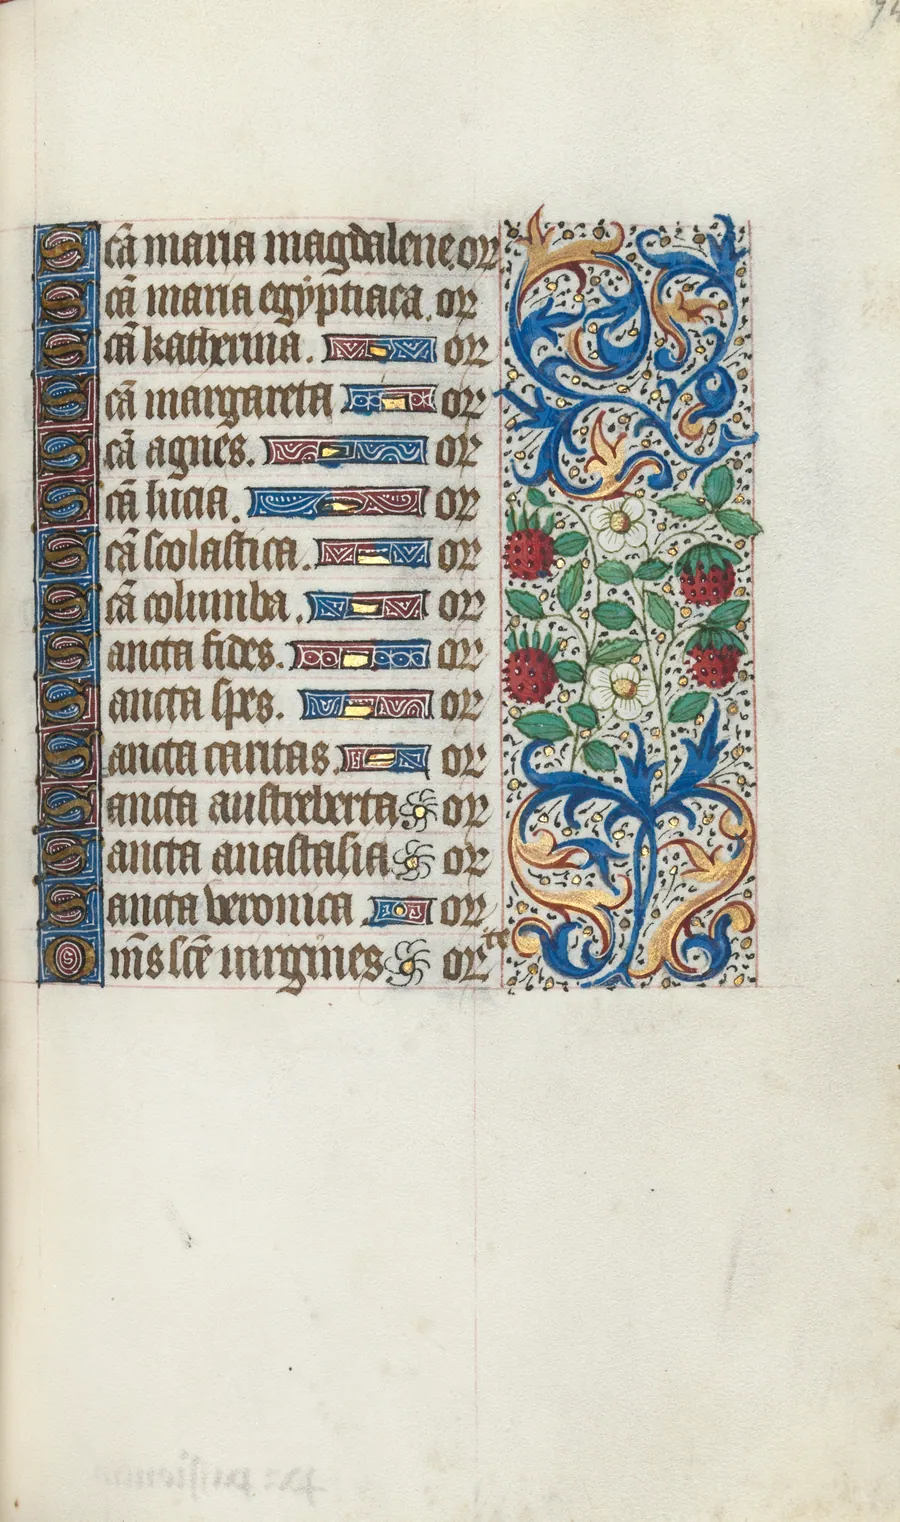 Scā maria magdalene. or
Scā maria egyptiaca. or
Scā katherina. or
Scā margareta or
Scā agnes. or
Scā lucia. or
Scā scolastica. or
Scā columba. or
Sancta fides. or
Sancta spes. or
Sancta caritas. or
Sancta austreberta or
Sancta anastasia or
Sancta veronica or
Om̄s scē virgines orte